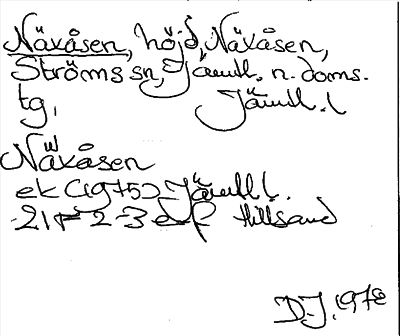 Näkåsen, höjd, Näkåsen,
Ströms sn, Jämtl. n. doms.
tg, Jämtl. l
Näkåsen
ek (1975) Jämtl l.
21F 2-3 ef Hillsand
D.J. 1978